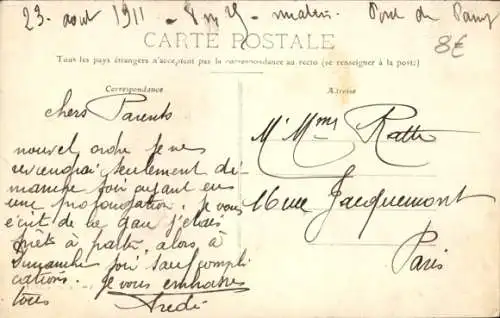 23 août 1911 - 8 m 25 - matin. Pont de
8€
CARTE POSTALE
Tous les pays étrangers n'acceptent pas la correspondance au recto (se renseigner à la poste)
Correspondance
Adresse
chers Parents
nouvel ordre je ne
reviendrai seulement di-
manche soir ayant eu
une prolongation. je vous
écrit de la gare j'étais
prêts à partir, alors à
Dimanche soir sauf compli
cations. je vous embrasse
tous
M. Mme Ratte
16 rue Jacquemont
Paris